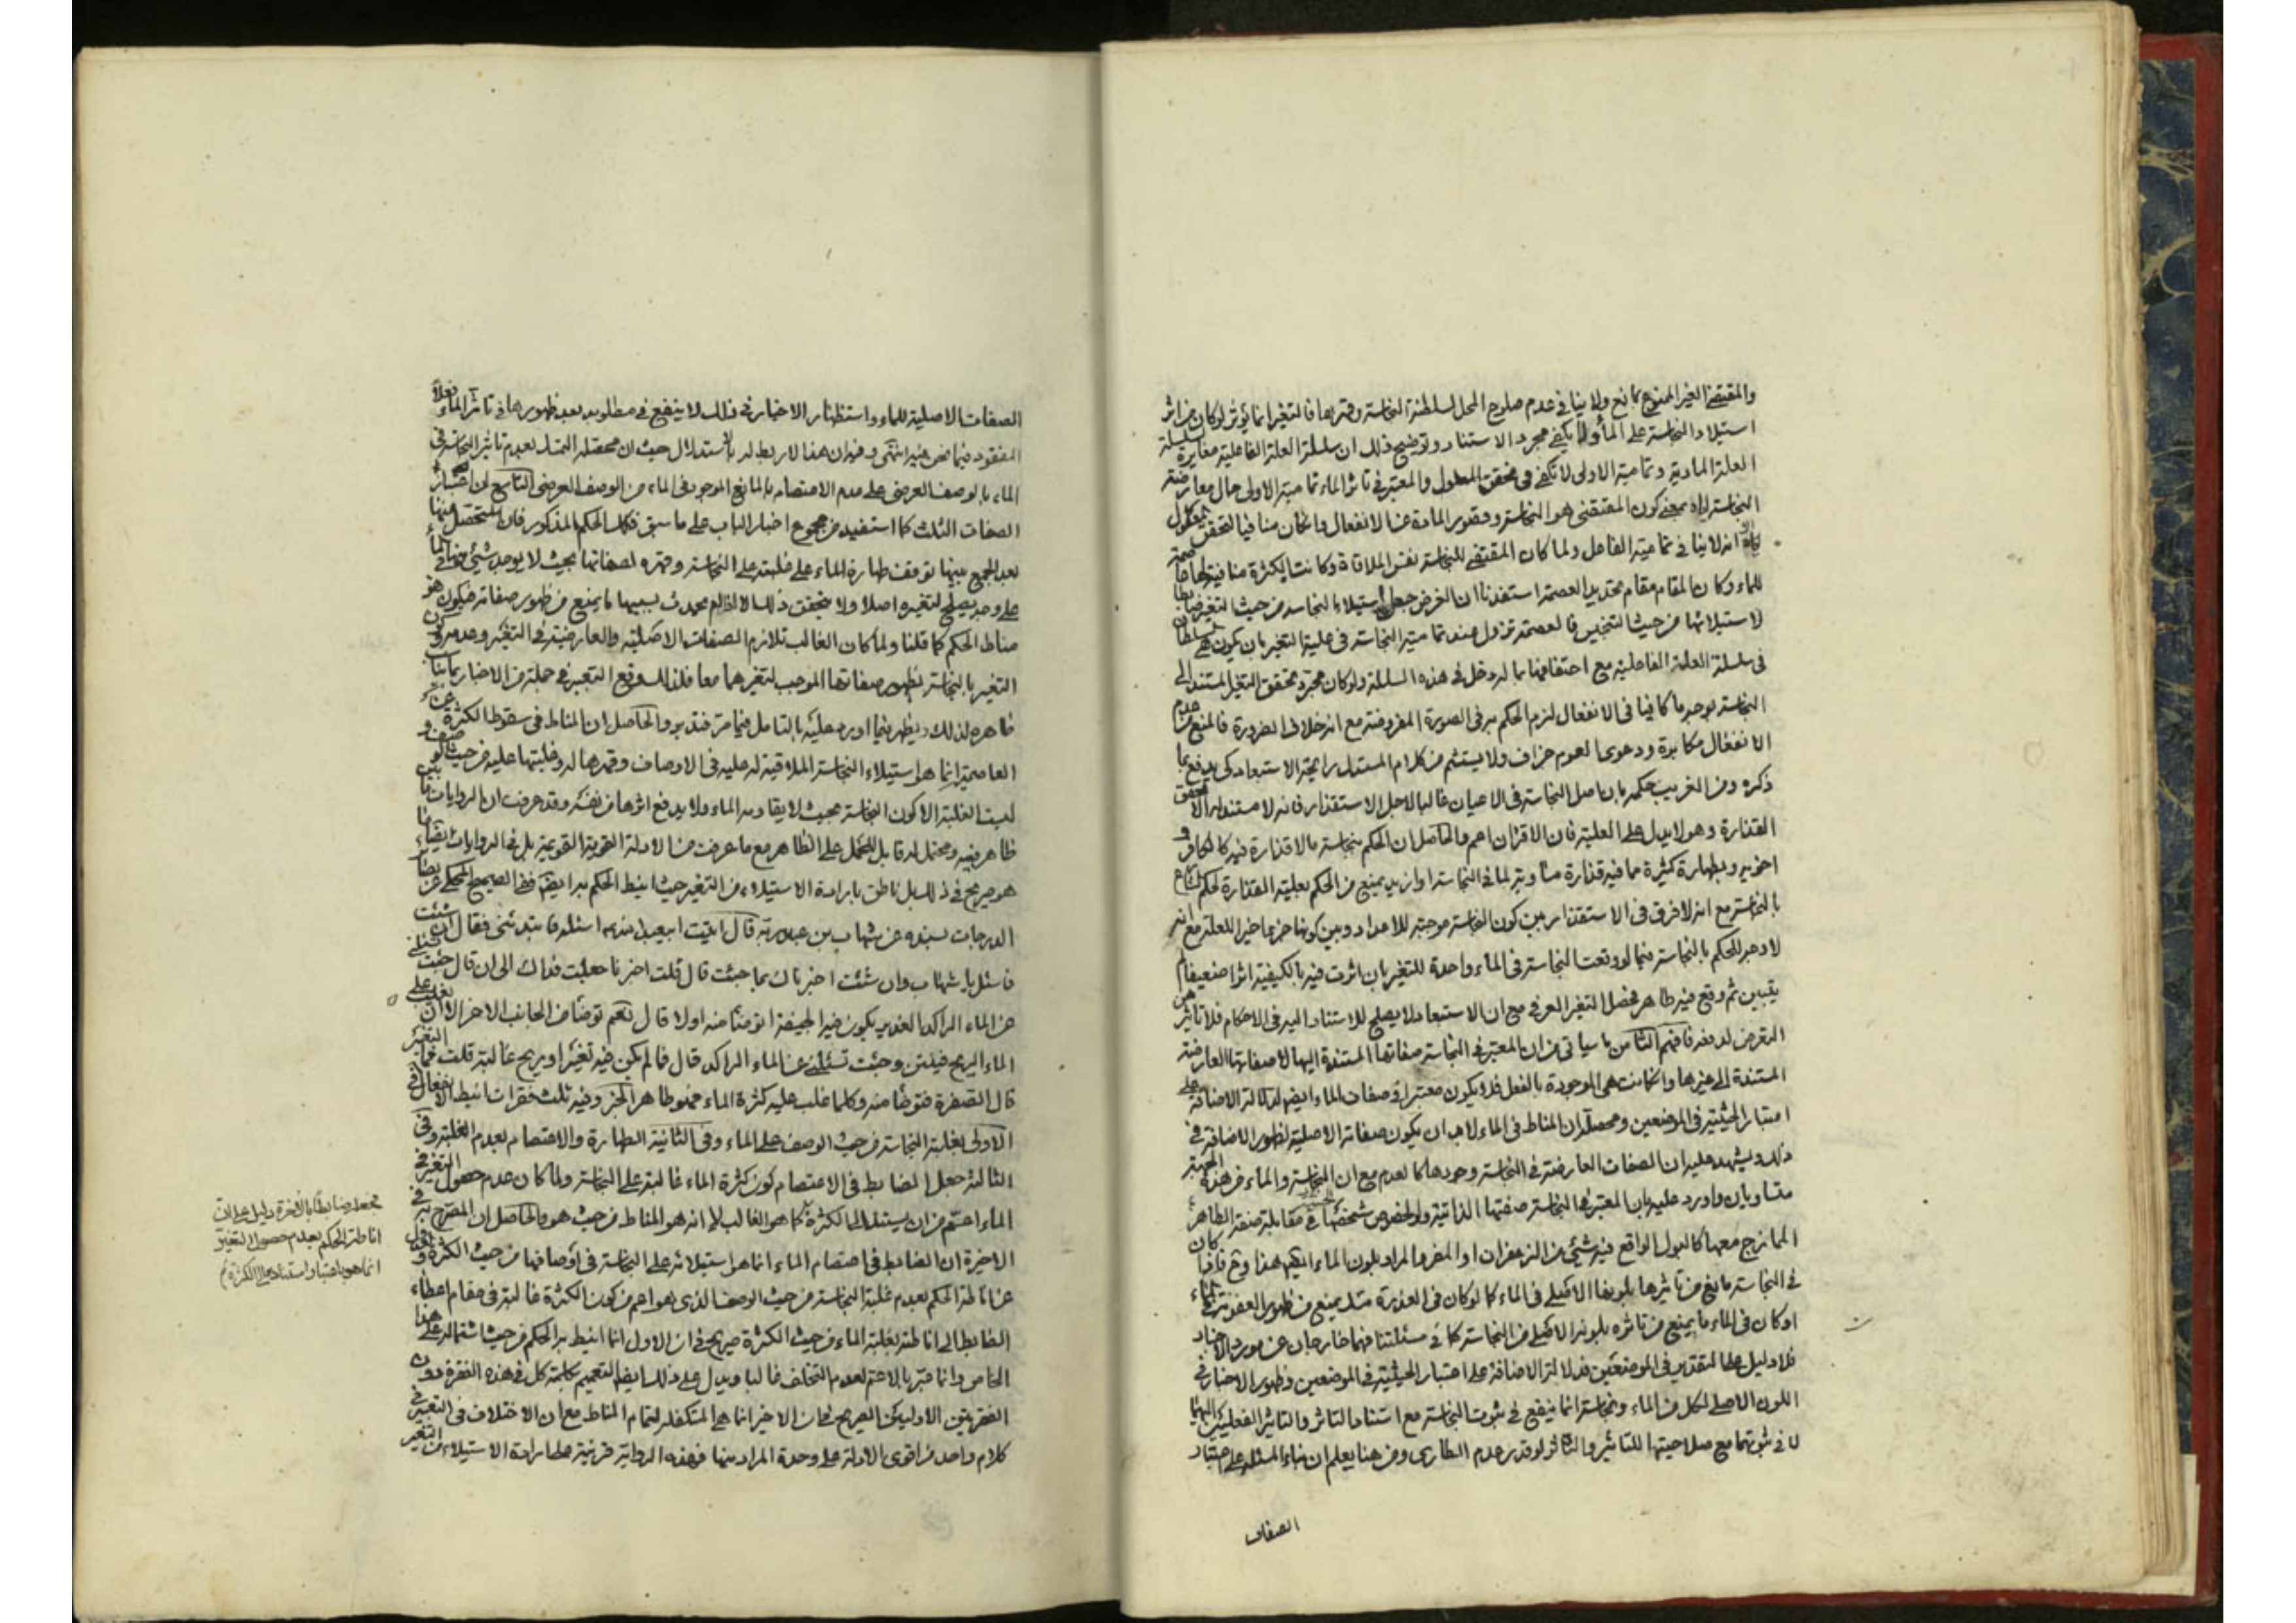 والمقتضي الغير الممنوع بمانع ولا ينافي عدم صلوح المحل لسلطنة النجاسة وقهرها فالتغير انما يؤثر لو كان من اثر
استيلاء النجاسة على الماء ولا يكفي مجرد الاستناد وتوضيح ذلك ان سلسلة العلة الفاعلية مغايرة لسلسلة
العلة المادية وتمامية الاولى لا تكفي في تحقق المعلول والمعتبر في تاثر الماء تمامية الاولى حال معارضة
النجاسة بمعنى كون المقتضي هو النجاسة وقصور المادة عن الانفعال وان كان منافيا لتحقق المعلول
الا انه لا ينافي تمامية الفاعل ولما كان المقتضي للنجاسة نفس الملاقاة وكانت الكثرة عاصمة
للماء وكان المقام مقام تحديد العصمة استفدنا ان الغرض جعل استيلاء النجاسة من حيث التغير ضابطا
لاستيلائها من حيث التنجيس فالعصمة تزول عند تمامية النجاسة في علية التغير بان يكون هي
في سلسلة العلة الفاعلية مع احتفافها بما له دخل في هذه السلسلة ولو كان مجرد تحقق التغير المستند الى
النجاسة بوجه ما كافيا في الانفعال لزم الحكم به في الصورة المفروضة مع انه خلاف الضرورة فالمنع من عدم
الانفعال مكابرة ودعوى العموم جزاف ولا يستشم من كلام المستدل رايحة الاستبعاد كي يدفع بما
ذكره ومن الغريب حكمه بان اصل النجاسة في الاعيان غالبا لاجل الاستقذار فانه لا مستند له الا تحقق
القذارة وهو لا يدل على العلية فان الاقتران اعم والحاصل ان الحكم بنجاسة ما لا قذارة فيه كالكافر و
اخويه وبطهارة كثيرة مما فيه قذارة مساوية لما في النجاسة او ازيد يمنع من الحكم بعلية القذارة لحكم الشارع
بالنجاسة مع انه لا فرق في الاستقذار بين كون النجاسة موجبة للاعداد وبين كونها جزءا اخيرا للعلة مع انه
لا وجه للحكم بالنجاسة فيما لو وقعت النجاسة في الماء واحدة للتغير بان اثرت فيه بالكيفية اثرا ضعيفا لم
يتبين ثم وقع فيه طاهر فحصل التغير العرفي مع ان الاستبعاد لا يصلح للاستناد اليه في الاحكام فلا تاثير
التعرض لدفعه فافهم الثامن ما سياتي من ان المعتبر في النجاسة صفاتها المستندة اليها لا صفاتها العارضة
المستندة الى غيرها وان كانت هي الموجودة بالفعل فلا يكون معتبرا في صفات الماء ايضا لدلالة الاضافة على
اعتبار الحيثية في الموضعين ومحصله ان المناط في الماء لا بد ان يكون صفاته الاصلية لظهور الاضافة في
ذلك ويشهد عليه ان الصفات العارضة في النجاسة وجودها كالعدم مع ان النجاسة والماء من هذه الجهة
متساويان واورد عليه بان المعتبر في النجاسة صفتها الذاتية ولو لخصوص شخصها في مقابلة صفة الطاهر
الممازج معها كالبول الواقع فيه شئ من الزعفران او المغرة المراد بلون الماء ايضا هذا
في النجاسة مانع من تاثيرها بلونها الاصلي في الماء كما لو كان في العذرة مسك يمنع من ظهور العفونة
او كان في الماء ما يمنع من تاثره بلونه الاصلي من النجاسة كما في مسئلتنا فهما خارجان عن مورد الاخبار
فلا دليل على التقدير في الموضعين فدلالة الاضافة على اعتبار الحيثية في الموضعين وظهور الاخبار في
اللون الاصلي لكل من الماء ونجاسة انما ينفع في ثبوت النجاسة مع استناد التاثر والتاثير الفعليين اليهما
لا في ثبوتها مع صلاحيتها للتاثير والتاثر لو قدر عدم الطاري ومن هنا يعلم ان بناء المسئلة على اعتبار
الصفات
الصفات الاصلية للماء واستظهار الاخبار في ذلك لا ينفع في مطلوبه بعد ظهورها في تاثر الماء فعلا
المفقود فيما نحن فيه انتهى وفيه ان هذا لا ربط له بالاستدلال حيث ان محصله التمسك بعدم تاثير النجاسة في
الماء بالوصف العرضي على عدم الاعتصام بالمانع الموجود في الماء من الوصف العرضي التاسع ان اعتبار
الصفات الثلث كما استفيد من مجموع اخبار الباب على ما سبق فكذا الحكم المذكور فان المتحصل منها
بعد الجمع بينها توقف طهارة الماء على غلبته على النجاسة وقهره لصفاتها بحيث لا يوجد شئ منها في الماء
على وجه يصلح لتغيره اصلا ولا يتحقق ذلك الا اذا لم يحدث بسببها ما يمنع من ظهور صفاته فيكون هو
مناط الحكم كما قلنا ولما كان الغالب تلازم الصفات الاصلية والعارضية في التغير وعدمه
التغير بالنجاسة بظهور صفاتها الموجب لتغيرهما معا فلذلك وقع التعبير في جملة من الاخبار بما ينافي
ظاهره لذلك ويظهر فيما اورد عليه بالتامل فيما مر فتدبر والحاصل ان المناط في سقوط الكثرة عن
العاصمية انما هو استيلاء النجاسة الملاقية له عليه في الاوصاف وقهرها له وغلبتها عليه من حيث
ليست الغلبة الا كون النجاسة بحيث لا يقاومه الماء ولا يدفع اثرها من نفسه وقد عرفت ان الروايات بين
ظاهر فيه ومحتمل له قابل للحمل على الظاهر مع ما عرفت من الادلة القوية القويمة بل في الروايات ايضا ما
هو صريح في ذلك بل ناطق بارادة الاستيلاء من التغير حيث انيط الحكم به ايضا ففي الصحيح المحكي عن بصائر
الدرجات بسنده عن شهاب بن عبد ربه قال اتيت ابا عبد الله اسئله فابتدئني فقال ان شئت
فاسئل يا شهاب وان شئت اخبرناك بما جئت قال قلت اخبرنا جعلت فداك الى ان قال جئت
عن الماء الراكد الغدير يكون فيه الجيفة اتوضأ منه اولا قال نعم توضأ من الجانب الاخر الا ان يغلب على
الماء الريح فينتن وجئت تسئلني عن الماء الراكد قال فما لم يكن فيه تغير او ريح غالبة قلت فما التغير
قال الصفرة فتوضأ منه وكلما غلب عليه كثرة الماء فهو طاهر الخبر وفيه ثلث فقرات انيط الانفعال في
الاولى بغلبة النجاسة من حيث الوصف على الماء وفي الثانية الطهارة والاعتصام بعدم الغلبة وفي
الثالثة جعل الضابط في الاعتصام كون كثرة الماء غالبة على النجاسة ولما كان عدم حصول التغير في
الماء اعم من ان يستند الى الكثرة كما هو الغالب الا انه هو المناط من حيث هو والحاصل ان المصرح به في
الاخيرة ان الضابط في اعتصام الماء انما هو استيلائه على النجاسة في اوصافها من حيث الكثرة و
عن اناطة الحكم بعدم غلبة النجاسة من حيث الوصف الذي هو اعم من كون الكثرة غالبة في مقام اعطاء
الضابط الى اناطته بغلبة الماء من حيث الكثرة صريح في ان الاول انما انيط به الحكم من حيث اشتماله على هذا
الخاص وانما عبر بالاعم لعدم التخلف غالبا ويدل على ذلك ايضا التعميم بكلمة كل في هذه الفقرة دون
الفقرتين الاوليين الصريح في ان الاخير انما هي المتكفلة لتمام المناط مع ان الاختلاف في التعبير في
كلام واحد من اقوى الادلة على وحدة المراد منها فهذه الرواية قرينة على ارادة الاستيلاء من التغير
فجعله ضابطا بالاخرة دليل على ان
اناطة الحكم بعدم حصول التغير
انما هو باعتبار استناده الى الكثرة